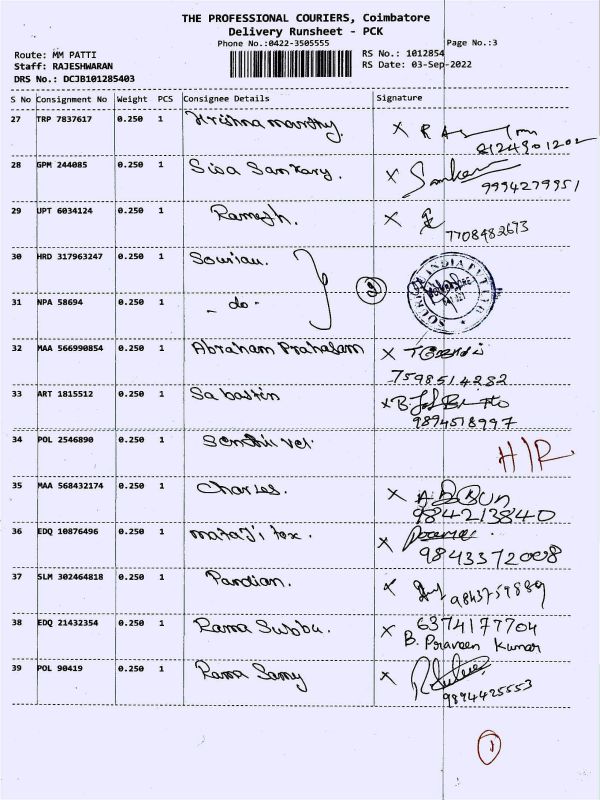 THE PROFESSIONAL COURIERS, Coimbatore
Delivery Runsheet - PCK
Phone No.:0422-3505555
Page No.:3
Route: MM PATTI
RS No.: 1012854
Staff: RAJESHWARAN
RS Date: 03-Sep-2022
DRS No.: DCJB101285403
S No Consignment No Weight PCS Consignee Details Signature
27 TRP 7837617 0.250 1 Krishna moorthy. X
8124901202
28 GPM 244085 0.250 1 Siva Sankary. X Sankar
9994279951
29 UPT 6034124 0.250 1 Ramesh. X
7708482673
30 HRD 317963247 0.250 1 Souriau. 2
SOURIAU INDIA PVT LTD
31 NPA 58694 0.250 1 - do -
32 MAA 566990854 0.250 1 Abraham Prahasam X
7598514282
33 ART 1815512 0.250 1 Sabastin X B.
9894518997
34 POL 2546890 0.250 1 Senthil vel. H/R
35 MAA 568432174 0.250 1 Charles. X
984213840
36 EDQ 10876496 0.250 1 mataji tex. X
9843372008
37 SLM 302464818 0.250 1 Pandian. X
9843759889
38 EDQ 21432354 0.250 1 Rama Subbu. X 6374177704
B. Praveen Kumar
39 POL 90419 0.250 1 Rama Samy X
9894425553
1